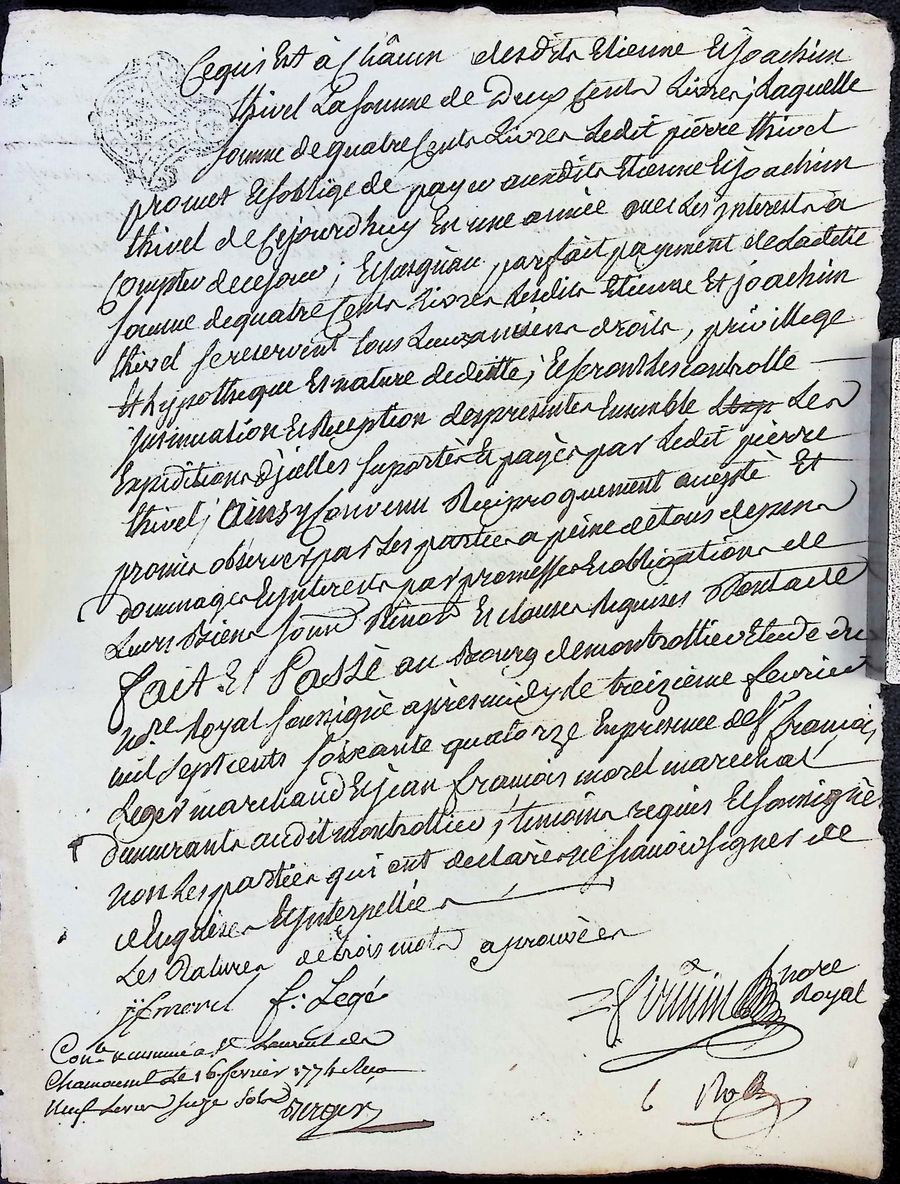 Cequi Est à Châcun desdits Etienne Et joachim
thivel La somme de Deux Cents Livres, Laquelle
somme de quatre Cents Livres Ledit pierre thivel
promet Et soblige de payer auxdits Etienne Et joachim
thivel de Cejourdhuy En une année avec Les jnterests à
Compter decejour ; Et jusquau parfait payement de Ladette
somme de quatre Cents Livres Lesdits Etienne Et joachim
thivel se reservent tous Leurs anciens droits, privillege
Et hypotheque Et nature de dette ; Et seront Les controlle
jnsinuation Et Reception des presentes Ensemble Les
Expeditions d'jcelles suportés Et payés par Ledit pierre
thivel ; Ainsy Convenu Reciproquement accepté Et
promis observer par Les parties a peine de tous depens
dommages Et jnterests par promesses Et obligations de
Leurs Biens soumis Renon Et clauses Requises Dontacte
Fait Et Passé au Bourg demontrottier Etude du
No.re Royal soussigné apresmidy Le treizieme fevrier
mil sept cents soixante quatorze En presence de S.r françois
Leger marchand Et jean françois morel marechal
demeurants audit montrottier, temoins requis Et soussignés
non Les parties qui ont declaré ne sçavoir signer de
ce Enquises Et jnterpellées
Les Ratures de trois mots aprouvées
jjfmorel f: Legé
nore
Royal
Con.le a St Laurent de
Chamousset Le 16 fevrier 1774 Reçu
Neuf Livres seize sols
Berger
6 Rolle